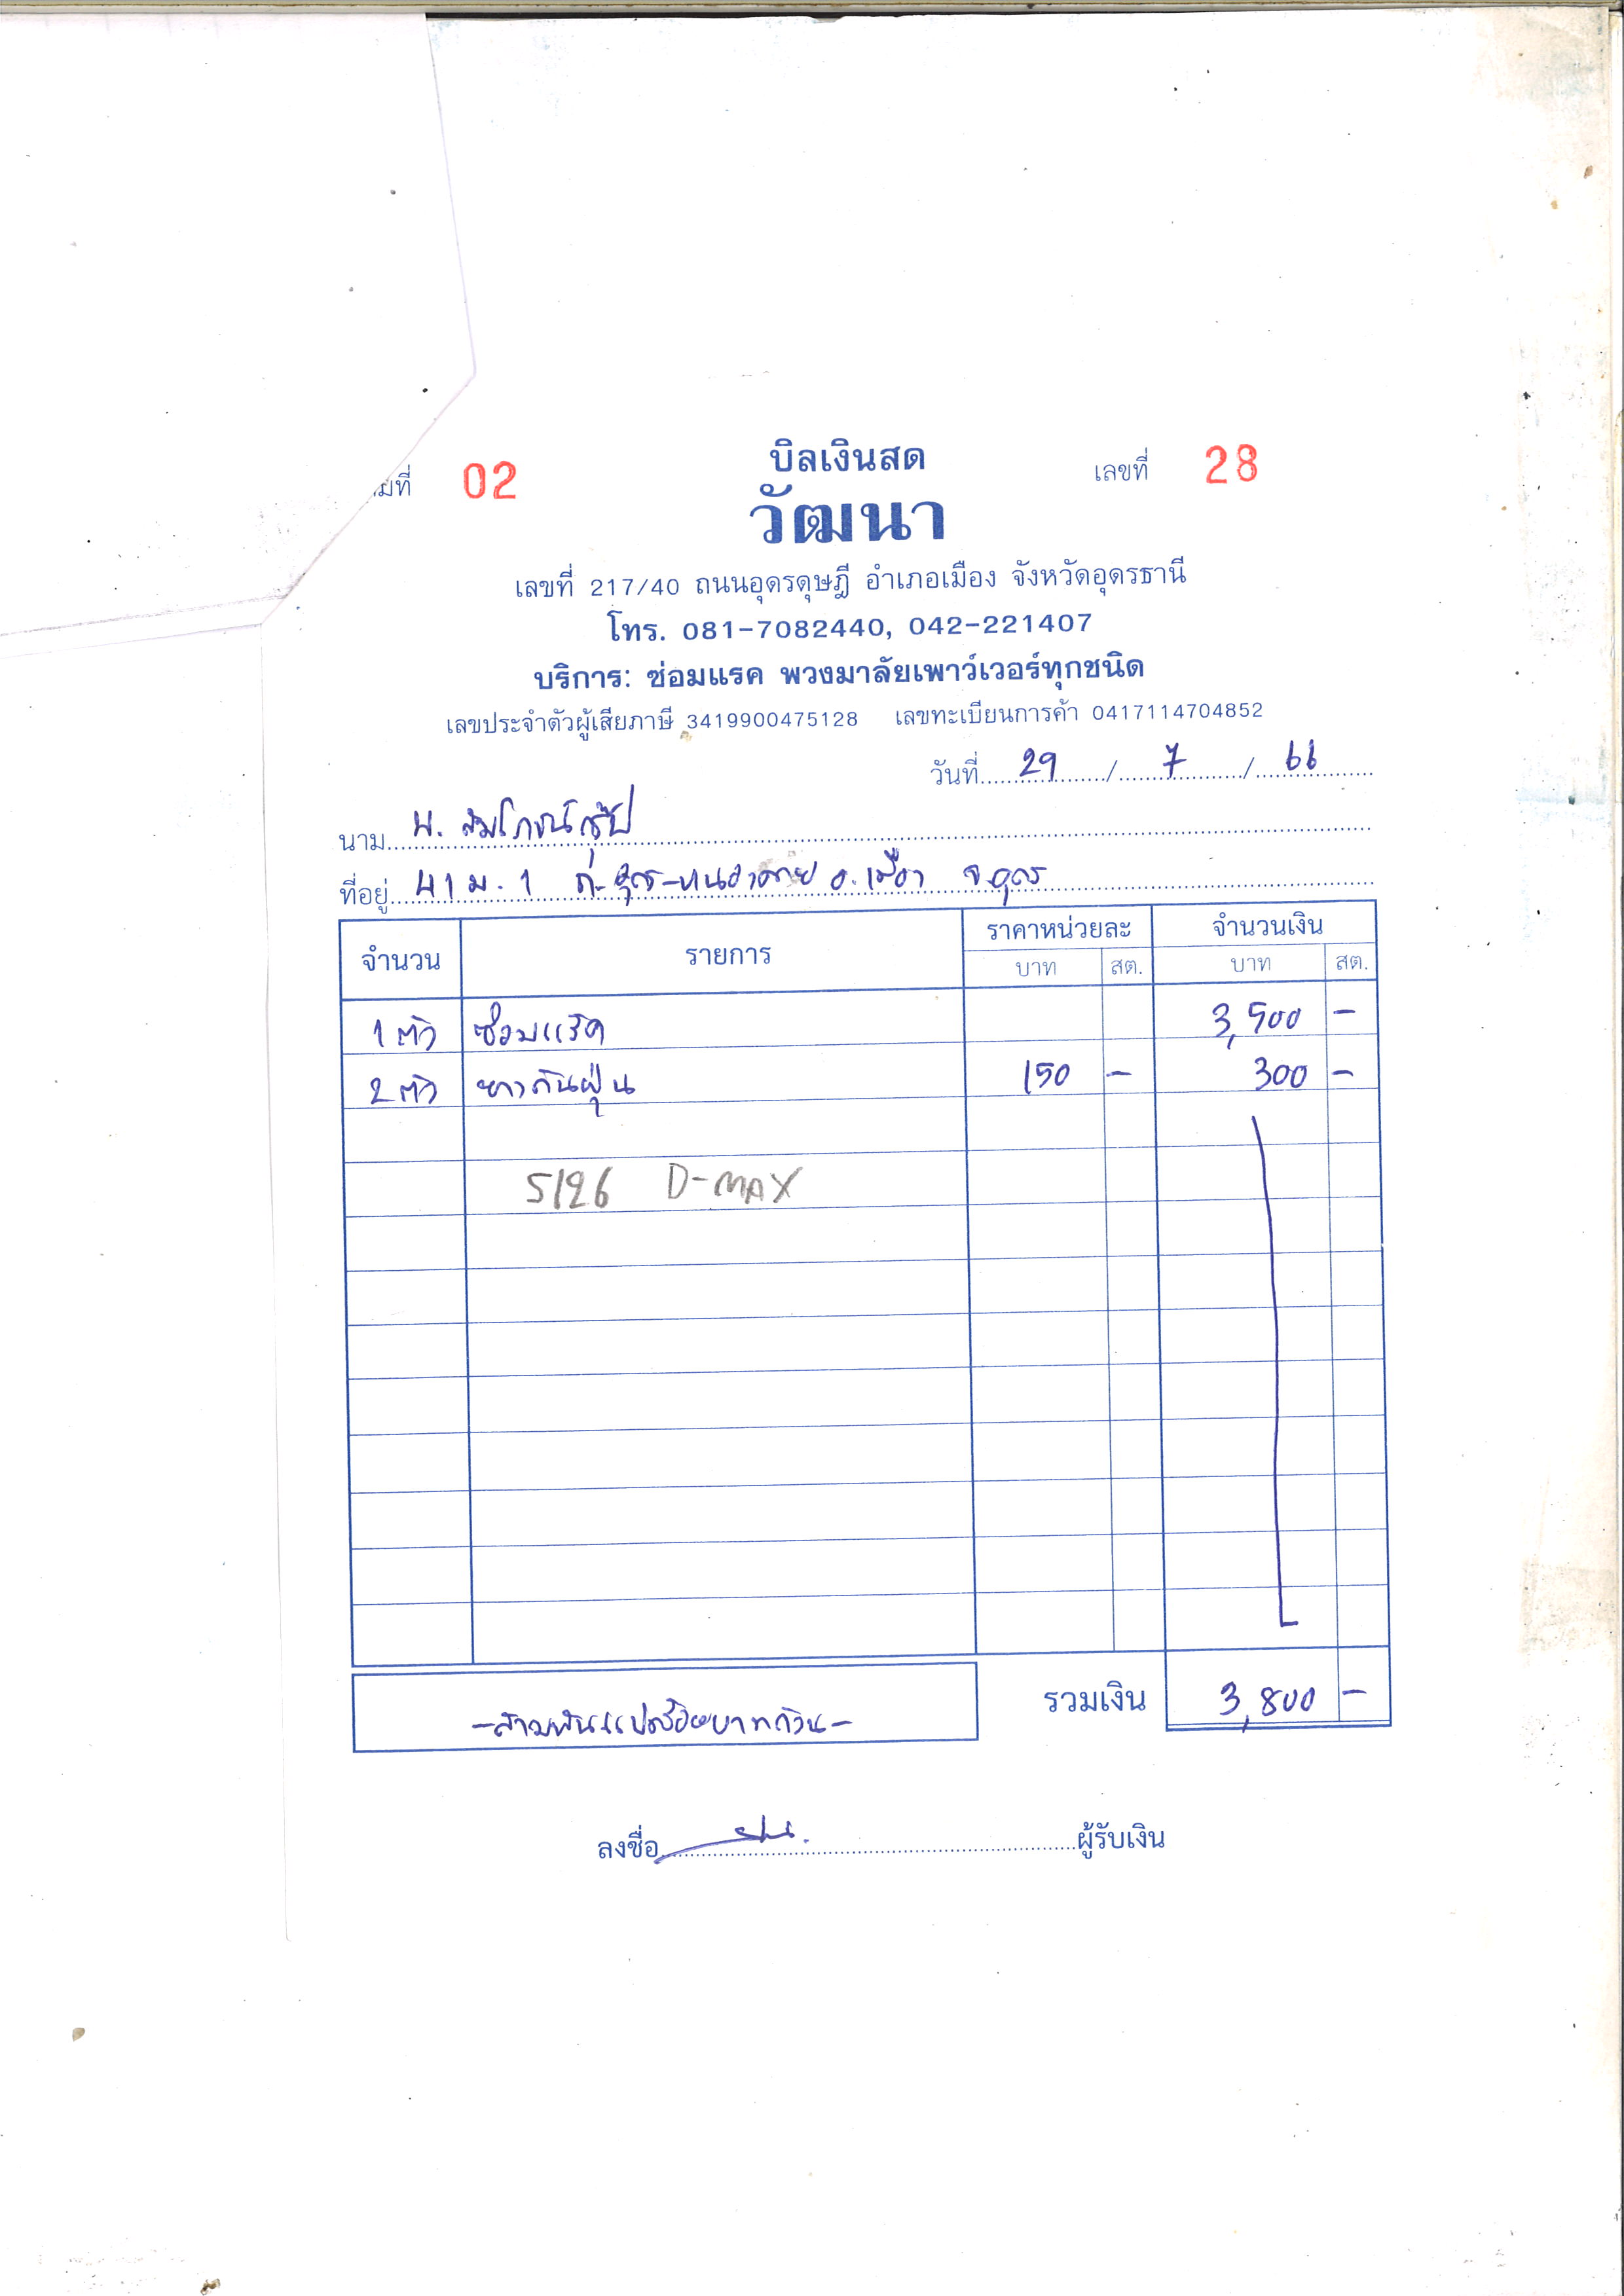 มที่ 02 บิลเงินสด เลขที่ 28
วัฒนา
เลขที่ 217/40 ถนนอุดรดุษฎี อำเภอเมือง จังหวัดอุดรธานี
โทร. 081-7082440, 042-221407
บริการ: ซ่อมแรค พวงมาลัยเพาว์เวอร์ทุกชนิด
เลขประจำตัวผู้เสียภาษี 3419900475128 เลขทะเบียนการค้า 0417114704852
วันที่ 29 / 7 / 66
นาม
ที่อยู่ 41 ม.1 ถ.อุดร-หนองคาย อ.เมือง จ.อุดร
จำนวน รายการ ราคาหน่วยละ จำนวนเงิน
บาท สต. บาท สต.
1 ตัว ซ่อมแร็ค 3,500 -
2 ตัว ยางกันฝุ่น 150 - 300 -
5126 D-MAX
-สามพันแปดร้อยบาทถ้วน- รวมเงิน 3,800 -
ลงชื่อ ผู้รับเงิน